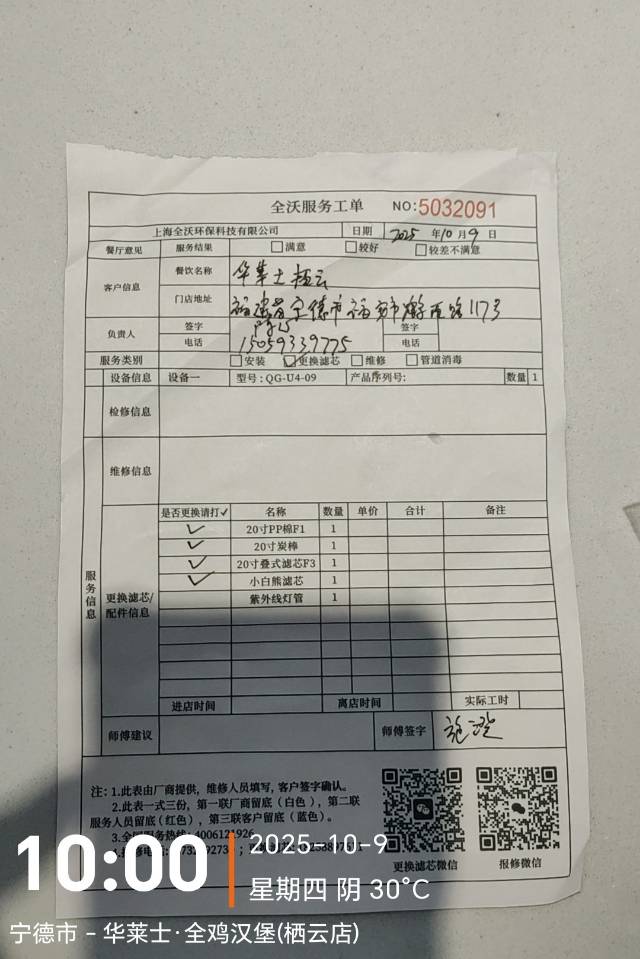 全沃服务工单 NO:5032091
上海全沃环保科技有限公司 日期 2025 年10月9日
餐厅意见 服务结果 □满意 □较好 □较差不满意
客户信息 餐饮名称 华莱士栖云
门店地址 福建省宁德市福安市 路1173
负责人 签字 签字
电话 15059339775 电话
服务类别 □安装 ☑更换滤芯 □维修 □管道消毒
设备信息 设备一 型号:QG-U4-09 产品序列号: 数量 1
检修信息
维修信息
服务信息
更换滤芯/配件信息
是否更换请打✓ 名称 数量 单价 合计 备注
✓ 20寸PP棉F1 1
✓ 20寸炭棒 1
✓ 20寸叠式滤芯F3 1
✓ 小白熊滤芯 1
紫外线灯管 1
进店时间 离店时间 实际工时
师傅建议 师傅签字
注:1.此表由厂商提供,维修人员填写,客户签字确认。
2.此表一式三份,第一联厂商留底(白色),第二联
服务人员留底(红色),第三联客户留底(蓝色)。
3.全国服务热线:4006121926
更换滤芯微信 报修微信
10:00 2025-10-9
星期四 阴 30°C
宁德市 - 华莱士·全鸡汉堡(栖云店)